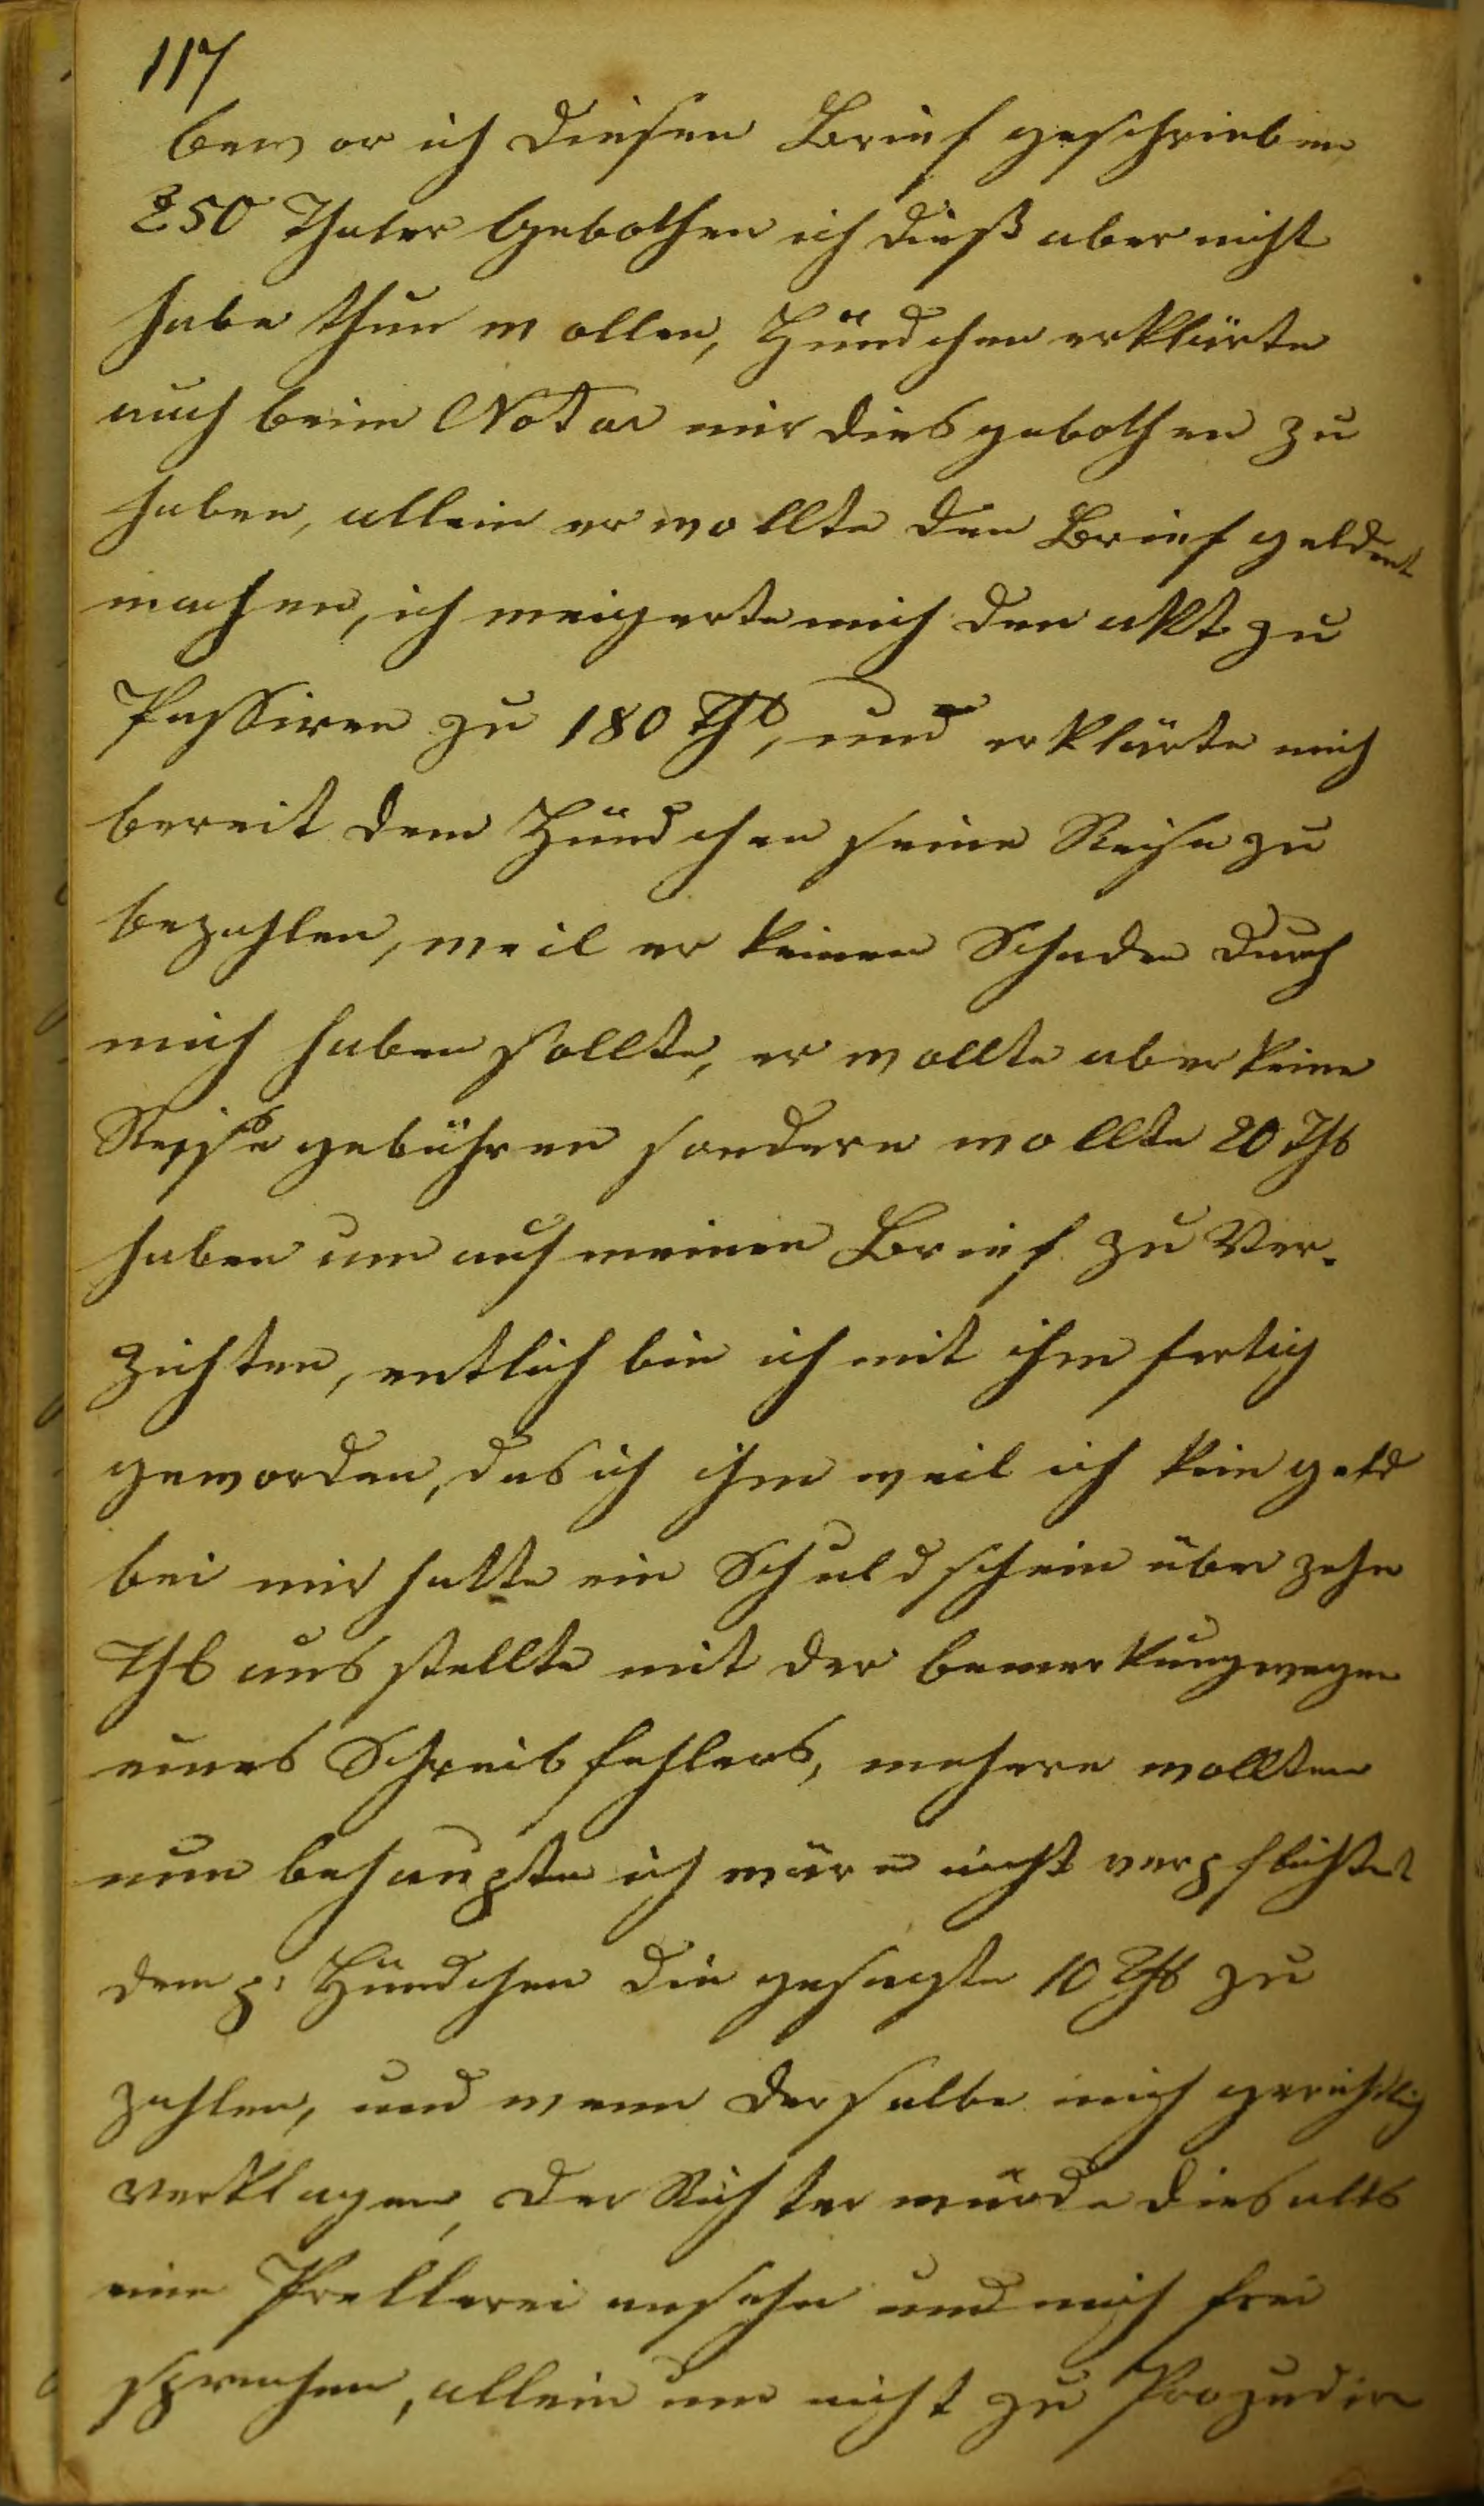 117
bewor ich diesen Brief geschrieben
250 Thaler Gebothen ich dieß aber nicht
habe thun wollen, Hündchen erklärte
auch beim Notar mir dies gebothen zu
haben, allein er wollte den Brief geldent
machen, ich weigerte mich den akt zu
Passiren zu 180 Thl, und erklärte mich
bereit dem Hündchen seine Reise zu
bezahlen, weil er keinen Schaden durch
mich haben sollte, er wollte aber keine
Reise gebühren sondern wollte 20 Thl
haben um auf meinen Brief zu Ver-
zichten, entlich bin ich mit ihm fertig
geworden, das ich ihm weil ich kein geld
bei mir hatte ein Schuldschein über zehn
Thl ausstellte mit der bemerkung wegen
eines Schreibfehlers, mehere wollten
nun behaupten ich wäre nicht verpflichtet
dem p: Hündchen die gesagte 10 Thl zu
zahlen, und wenn derselbe mich gerichtlig
verklagen, der Richter würde dies alls
eine Prellerei ansehn und mich frei
sprechen, allein um nicht zu Prozedir